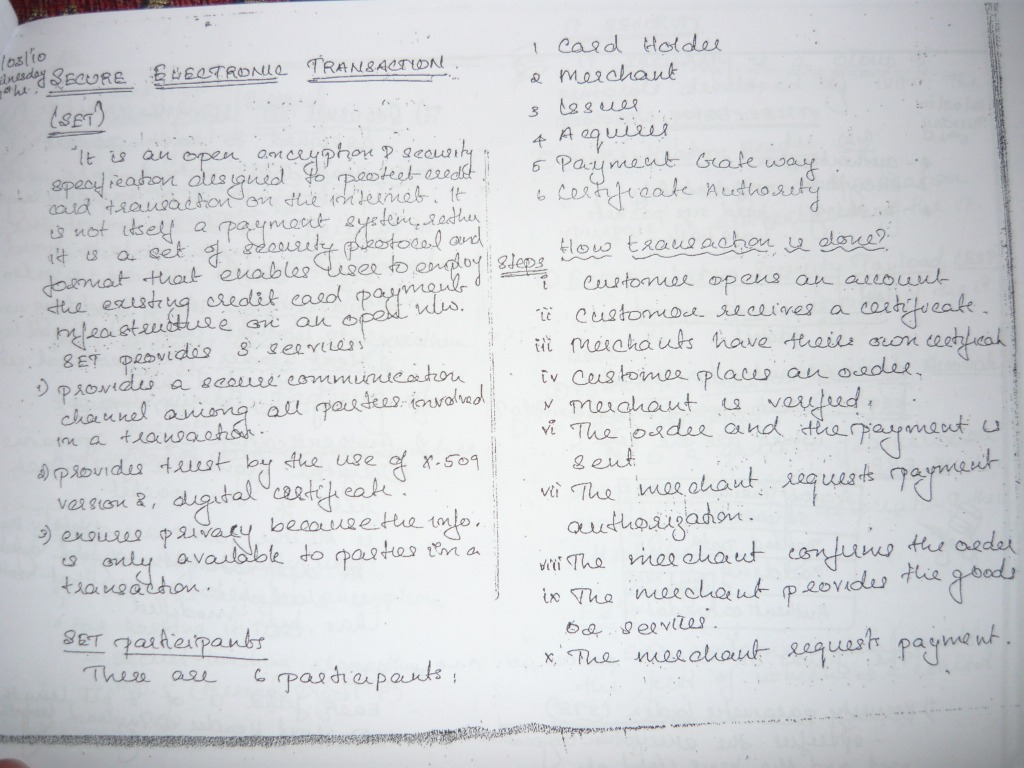 /03/10
SECURE ELECTRONIC TRANSACTION
(SET)
It is an open encryption & security
specification designed to protect credit
card transaction on the internet. It
is not itself a payment system, rather
it is a set of security protocol and
format that enables user to employ
the existing credit card payment
infrastructure on an open n/w.
SET provides 3 services:
1) provides a secure communication
channel among all parties involved
in a transaction.
2) provides trust by the use of X.509
version 3, digital certificate.
3) ensures privacy because the info.
is only available to parties in a
transaction.
SET participants
There are 6 participants:
1 Card Holder
2 Merchant
3 Issuer
4 Acquirer
5 Payment Gateway
6 Certificate Authority
How transaction is done?
Steps
i Customer opens an account
ii Customer receives a certificate.
iii Merchants have their own certificate
iv Customer places an order.
v Merchant is verified.
vi The order and the payment is
sent
vii The merchant requests payment
authorization.
viii The merchant confirms the order
ix The merchant provides the goods
or services.
x. The merchant requests payment.